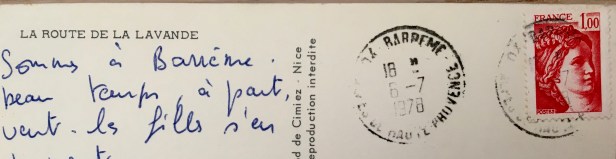 LA ROUTE DE LA LAVANDE
Sommes à Barrême.
beau temps, à part,
vent. les filles s'en
d de Cimiez - Nice
eproduction interdite
BARREME
18 H
6-7
1978
ALPES DE HAUTE PROVENCE
FRANCE
1,00